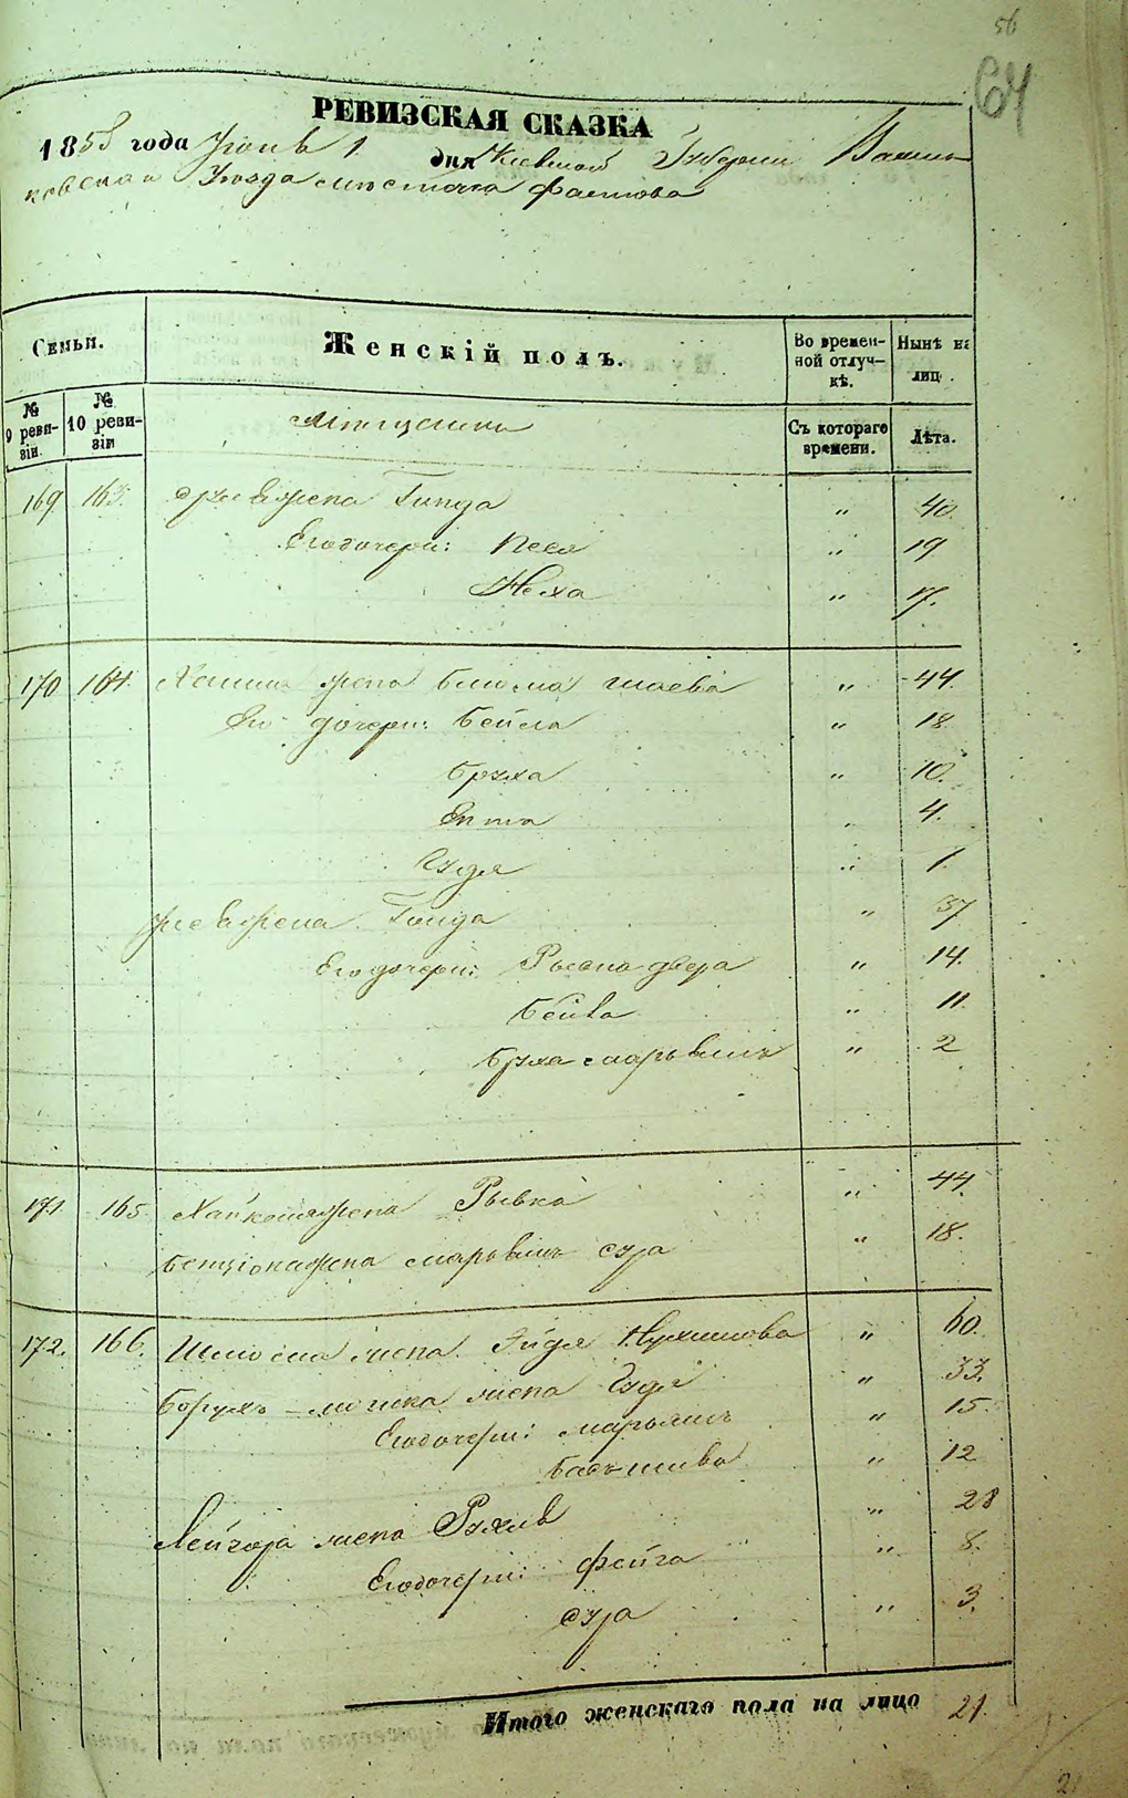 56
64
РЕВИЗСКАЯ СКАЗКА
1858 года Июнь 1 дня Кіевской Губерніи Василь
ковскаго Уѣзда мѣстечка Фастова
Семьи.
Женскій полъ.
Во времен-
ной отлуч-
кѣ.
Нынѣ на
лиц.
№
9 реви-
зіи.
№
10 реви-
зіи
Мещанки
Съ котораго
времени.
Лѣта.
169 163. жена Гинда " 40.
Его дочери: Песя " 19
Неха " 17.
170 164. жена Блюма " 44.
Его дочери: Бейла " 18
Бруха " 10.
Ента " 4.
Гудя " 1.
жена Гинда " 37
Его дочери: двера " 14.
Бейла " 11.
Бруха " 2
171 165 жена Рывка " 44.
Бенціона жена сура " 18.
172. 166. Шліома жена Эйдля " 60.
Борухъ-мошка жена Гудя " 33.
Его дочери: марьямъ " 15.
Басъ-шива " 12
Лейзора жена Рухля " 28
Его дочери: Фейга " 8.
сура " 3.
Итого женскаго пола на лицо 21.